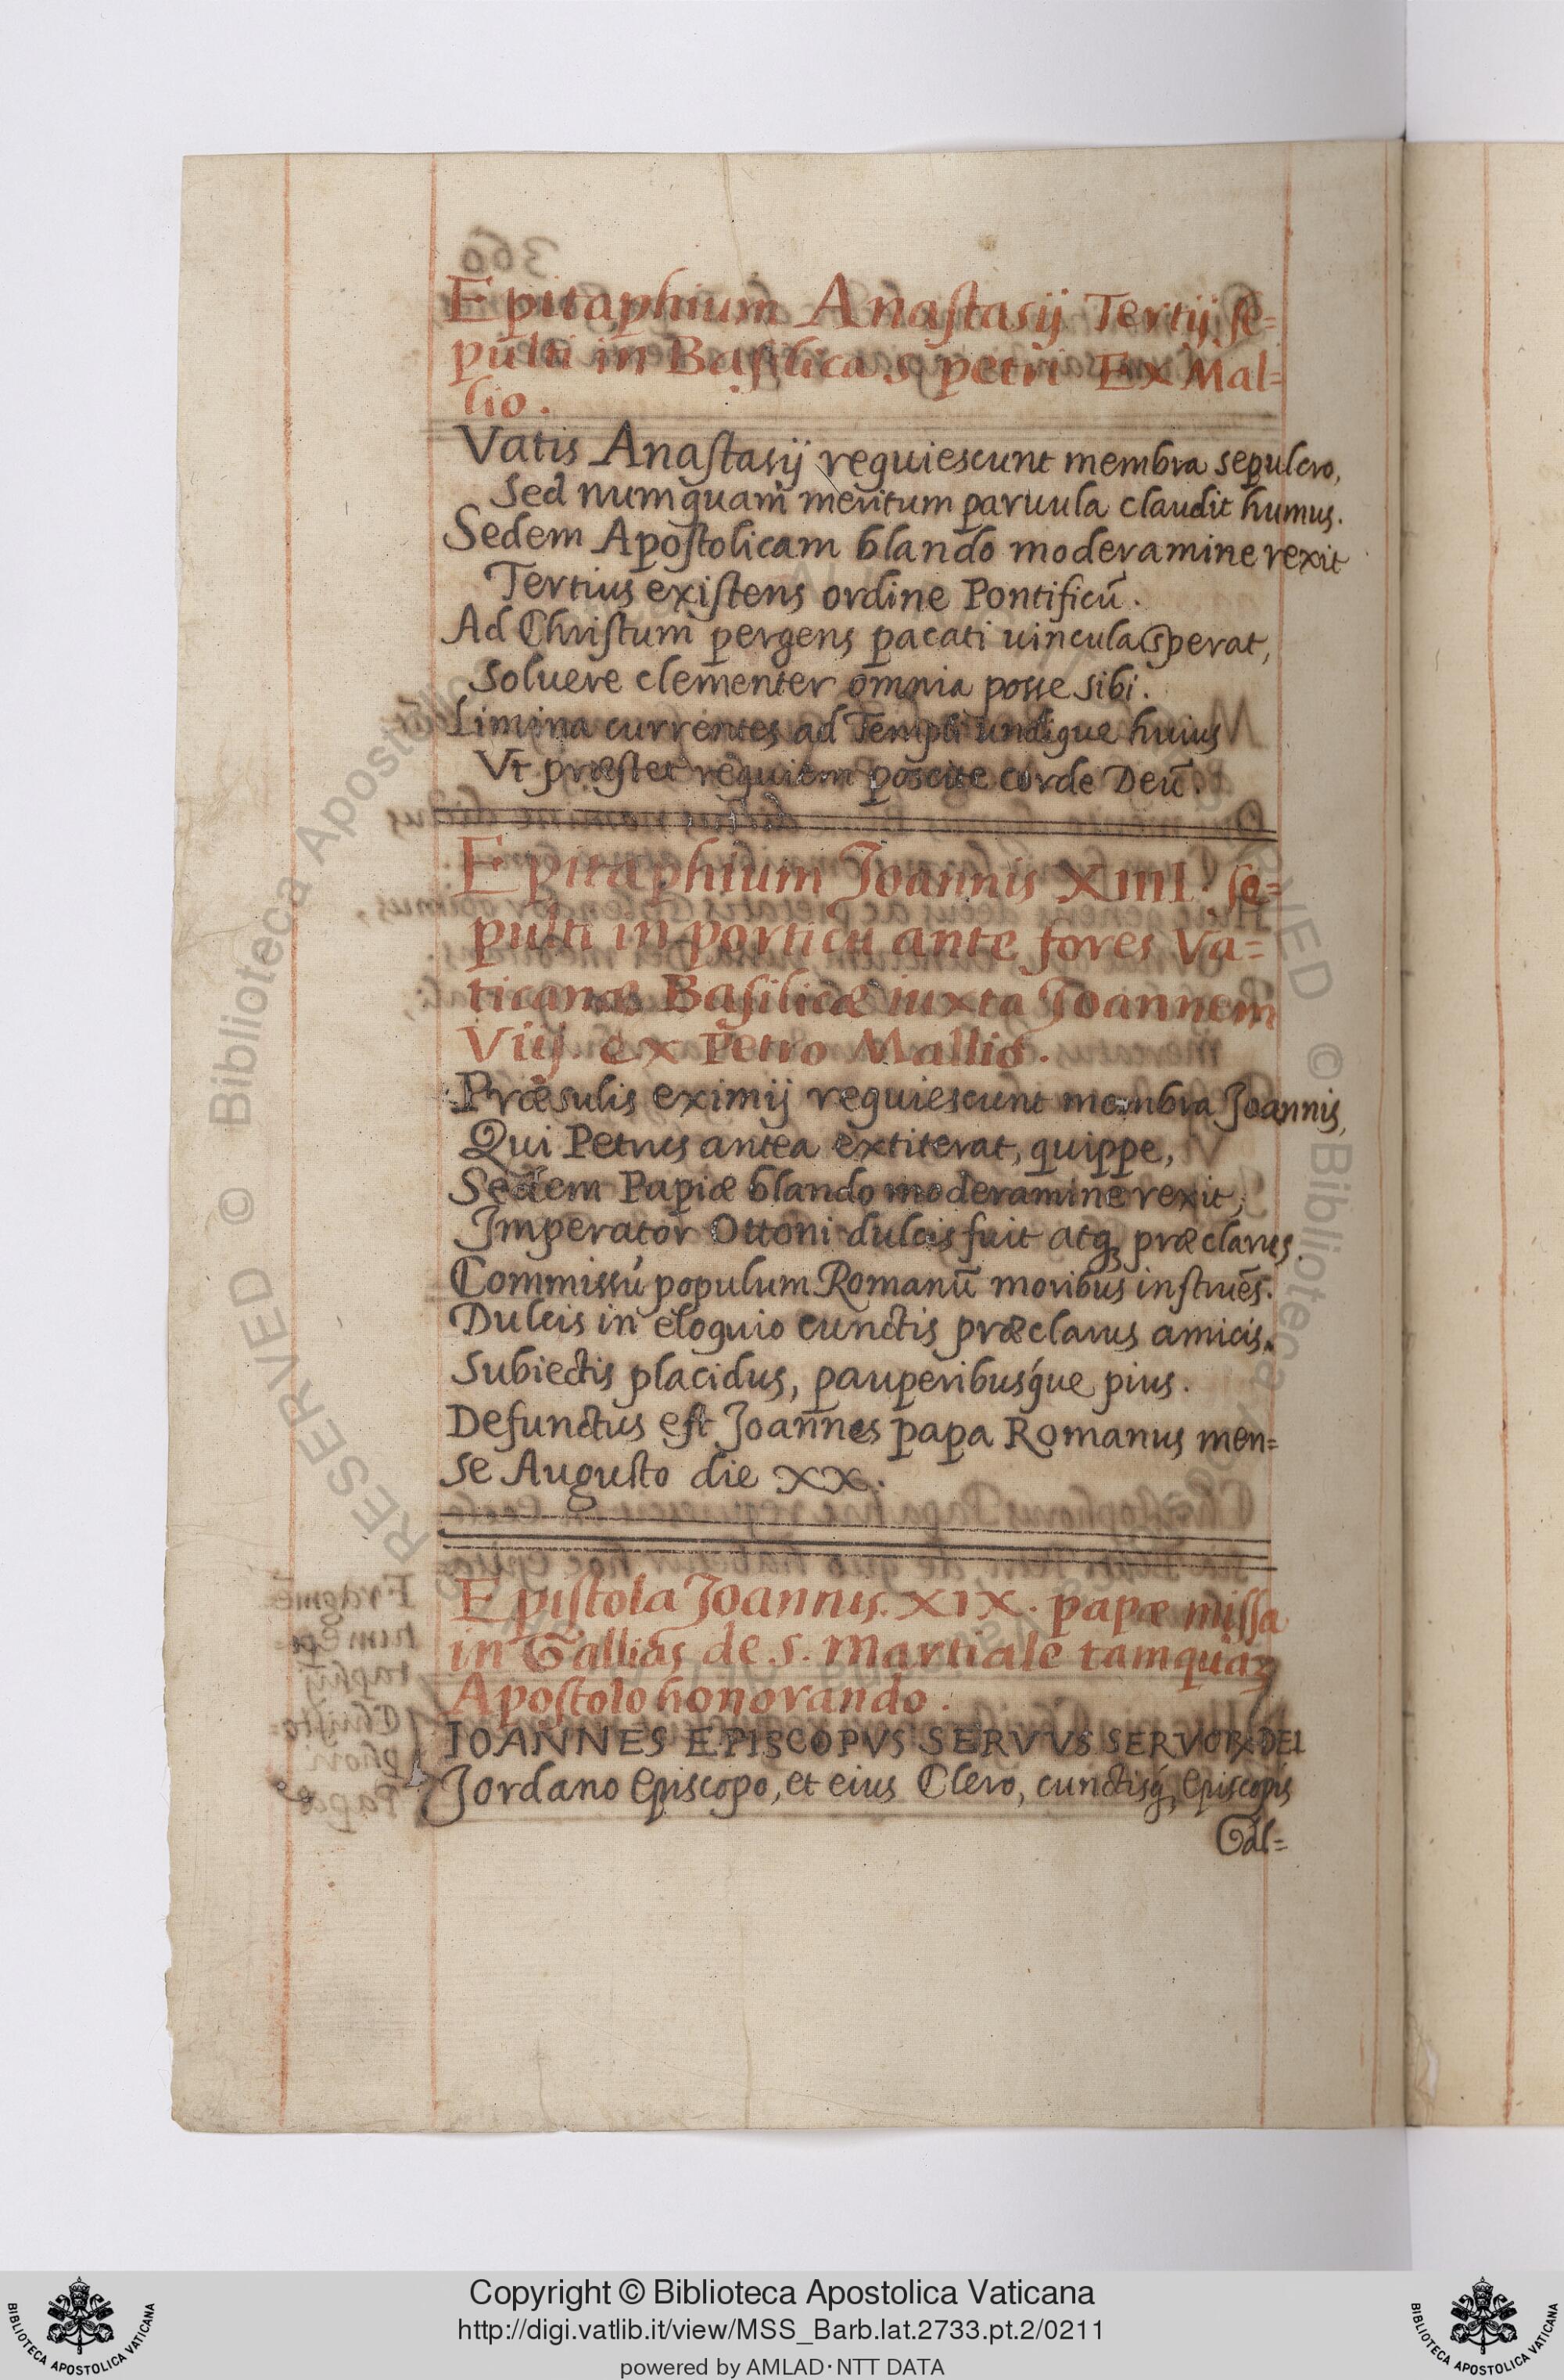 Epitaphium Anastasij Tertij se=
pulti in Basilica s. petri Ex Mal=
lio.
Vatis Anastasij requiescunt membra sepulcro,
Sed numquam meritum paruula claudit humus.
Sedem Apostolicam blando moderamine rexit
Tertius existens ordine Pontificū.
Ad Christum pergens pacati uincula sperat,
Soluere clementer omnia posse sibi.
Limina currentes ad Templi undique huius
Vt præstet requiem poscite corde Deū.
Epitaphium Joannis XIIII. se=
pulti in porticu ante fores Va=
ticanæ Basilicæ iuxta Joannem
Vij. ex Petro Mallio.
Præsulis eximij requiescunt membra Joannis,
Qui Petrus antea extiterat, quippe,
Sedem Papiæ blando moderamine rexit;
Imperator Ottoni dulcis fuit atq; præclarus.
Commissū populum Romanū moribus instruēs.
Dulcis in eloquio cunctis præclarus amicis.
Subiectis placidus, pauperibusq́ue pius.
Defunctus est Joannes papa Romanus men=
se Augusto die XX.
Epistola Joannis XIX. papæ missa
in Gallias de s. Martiale tamquaȝ
Apostolo honorando.
IOANNES EPISCOPVS SERVVS SERVOR; DEI
Jordano Episcopo, et eius Clero, cunctisq́; Episcopis
Gal=
Copyright © Biblioteca Apostolica Vaticana
http://digi.vatlib.it/view/MSS_Barb.lat.2733.pt.2/0211
powered by AMLAD·NTT DATA
BIBLIOTECA APOSTOLICA VATICANA
BIBLIOTECA APOSTOLICA VATICANA